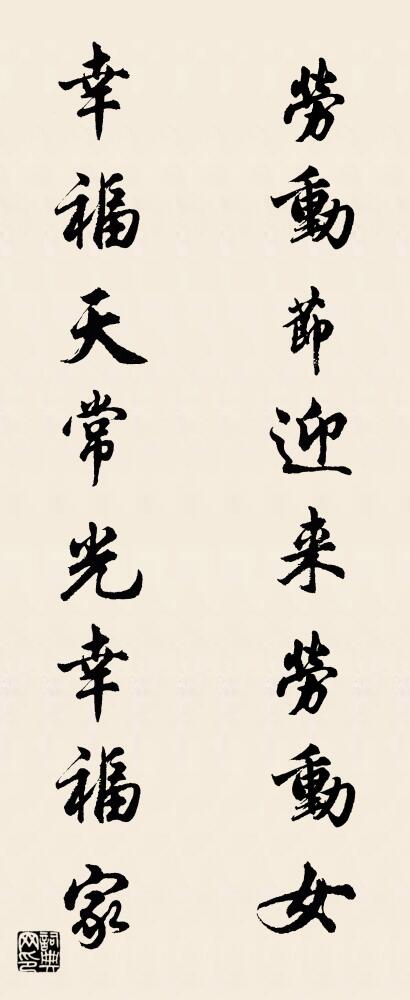 勞動節迎来勞動女
幸福天常光幸福家
詞典网印